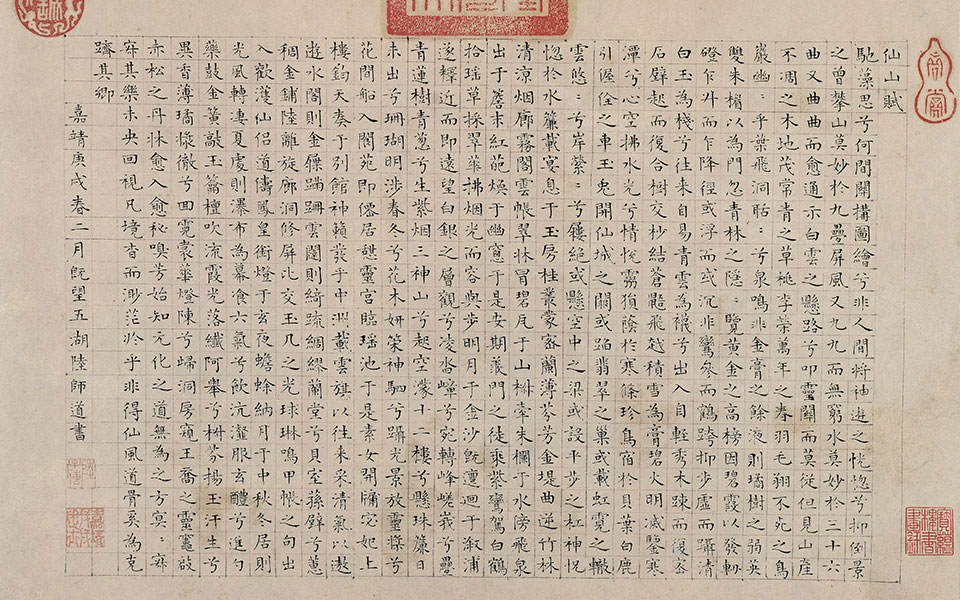 仙山賦
馳藻思兮何間關構圖繪兮非人間將神遊之恍惚兮抑倒景
之曾攀山莫妙於九疊屏風又九九而無窮水莫妙於三十六
曲又曲曲而愈通示白雲之懸路兮叩靈關而莫從但見山崖
不凋之木地茂常青之草桃李榮萬年之春羽毛翔不死之鳥
巖幽:乎葉飛洞聒:兮泉鳴非金膏之餘液則璚樹之弱英
雙朱榻以為門忽青林之隱:覽黃金之高榜因碧霞以發軔
磴乍升而乍降徑或浮而或沉非鸞參而鶴跨抑步虛而躡清
白玉為棧兮往來自易青雲為襪兮出入自輕秀木疎而復密
石壁起而復合樹交杪結蒼鼯飛越積雪為膏碧火明滅鑒寒
潭兮心空拂水光兮情恍霧須蔭於寒條珍鳥宿於貝葉白鹿
引偓佺之車玉兔開仙城之關或蹈翡翠之巢或載虹霓之轍
雲悠:兮岸縈:兮鏤絶或懸空中之梁或設平步之杠神怳
惚於水簾載宴息于玉房桂叢蒙密蘭薄芬芳金堤曲逆竹林
清涼烟廊霧閣雲帳翠牀冒碧瓦于山椒牽朱欄于水傍飛泉
出于簷末紅葩煥于幽窻于是安期羨門之徒乘紫鸞駕白鶴
拾瑤草採翠華拂烟光而容與步明月于金沙既邅迴于溆浦
逐釋近而即遠望白銀之層觀兮凌沓嶂兮宛轉峰嵯峩兮疊
青蓮樹青葱兮生紫烟二神山兮起空濛十二樓兮懸珠簾日
未出兮珊瑚明涉春冬兮花木妍策神駟兮躡光景放靈槳兮
花間船入閬苑即僊居憇靈宮臨瑶池于是素女開牖宓妃上
樓鈞天奏于別館神籟發乎中洲載雲旗以往來采清氣以遨
遊水閣則金鏁蹣跚雲闥則綺疏綢繆蘭堂兮貝室蓀壁兮蕙
稠金鋪陸離旋廊洞修屏交玉几之光球琳鳴甲帳之句出
入歡濩仙侣道儔鳳皇銜燈于玄夜蟾蜍納月于中秋冬居則
光風轉凄夏處則瀑布為幕飡六氣兮飲沆瀣服玄醴兮進勺
藥鼓金簧敲玉籥檀吹流霞光落纖阿舉兮椒芬揚玉汗生兮
異香薄璚檠徹兮回霓裳華燈陳兮歸洞房窺王喬之靈竈啟
赤松之丹牀愈入愈秘嗅芳始知元化之道無為之方冥:寐
寐其樂未央回視凡境杳而渺茫於乎非得仙風道骨奚為克
躋其鄉
嘉靖庚戌春二月既望五湖陸師道書